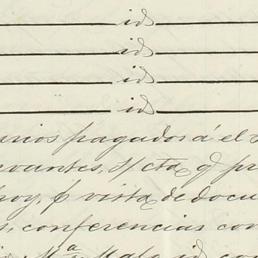 id
id
id
id
arios pagador á el
ovantes, s/ cta q pr
hoy, p vista de docu
s, conferencias con
Ma Malo id co